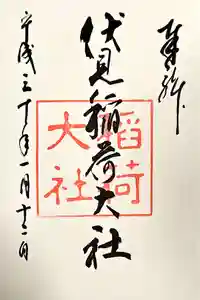 奉拝
伏見稲荷大社
平成三十年一月十二日
稲荷
大社